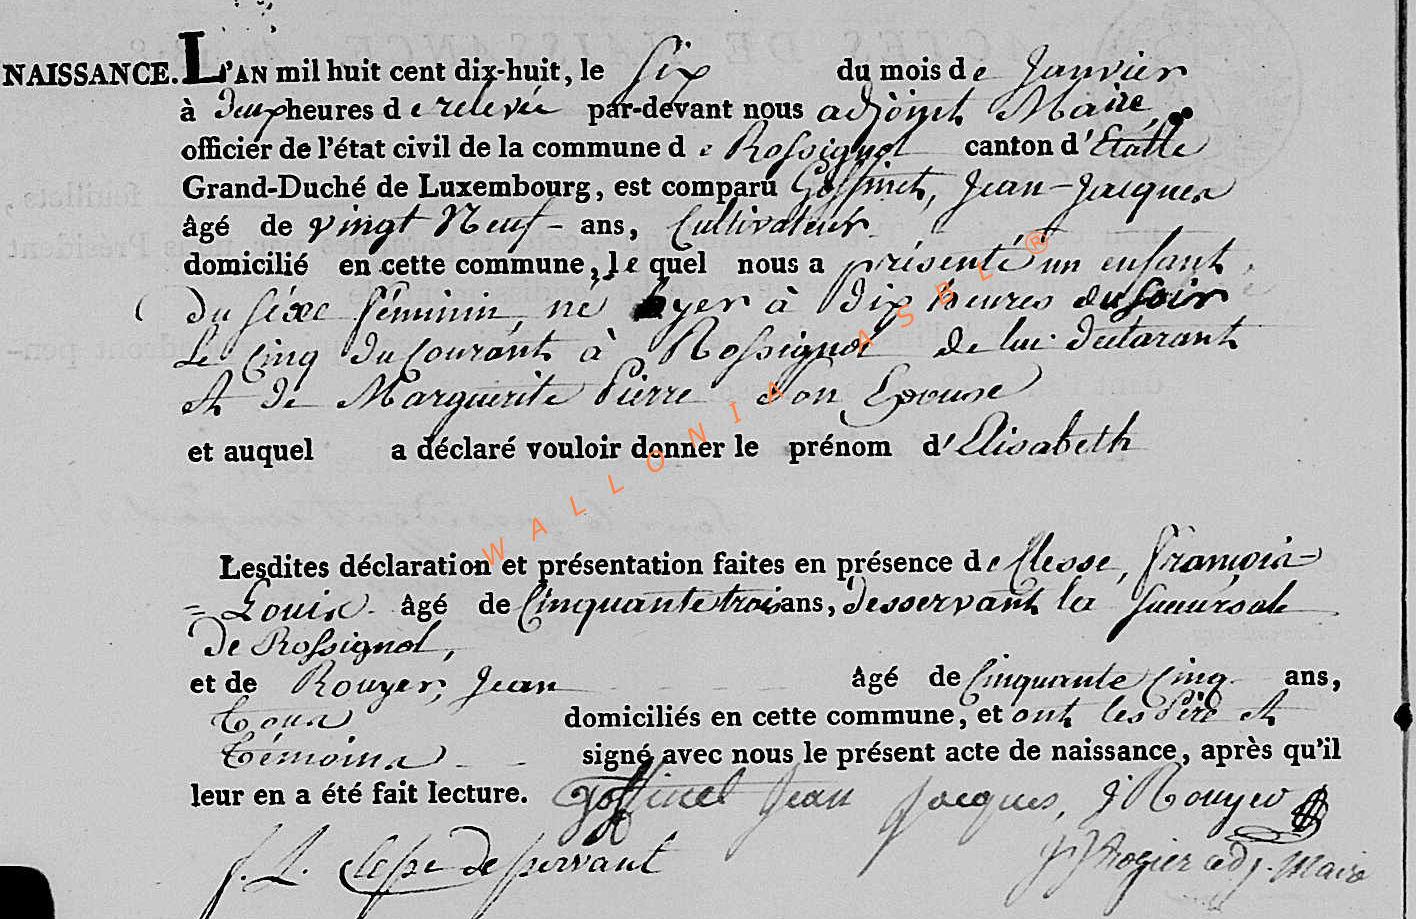 NAISSANCE. L'AN mil huit cent dix-huit, le Six du mois de Janvier
à deux heures de relevée par-devant nous adjoint Maire,
officier de l'état civil de la commune de Rossignol canton d'Etalle
Grand-Duché de Luxembourg, est comparu Goffinet, Jean-Jacques
âgé de vingt Neuf - ans, Cultivateur
domicilié en cette commune, le quel nous a présenté un enfant
du séxe féminin, né hyer à dix heures du soir
Le Cinq du Courant à Rossignol de lui declarant
et de Marguerite Pierre Son Epouse
et auquel a déclaré vouloir donner le prénom d'Elisabeth
Lesdites déclaration et présentation faites en présence de Clesse, François-
=Louis âgé de Cinquante trois ans, Desservant la Succursale
de Rossignol,
et de Rouyer, Jean âgé de Cinquante Cinq ans,
tous domiciliés en cette commune, et ont les Père et
témoins signé avec nous le présent acte de naissance, après qu'il
leur en a été fait lecture. Goffinet Jean Jacques, J Rouyer
f. L. Clesse desservant Rogier adj. Maire
WALLONIA ASBL®